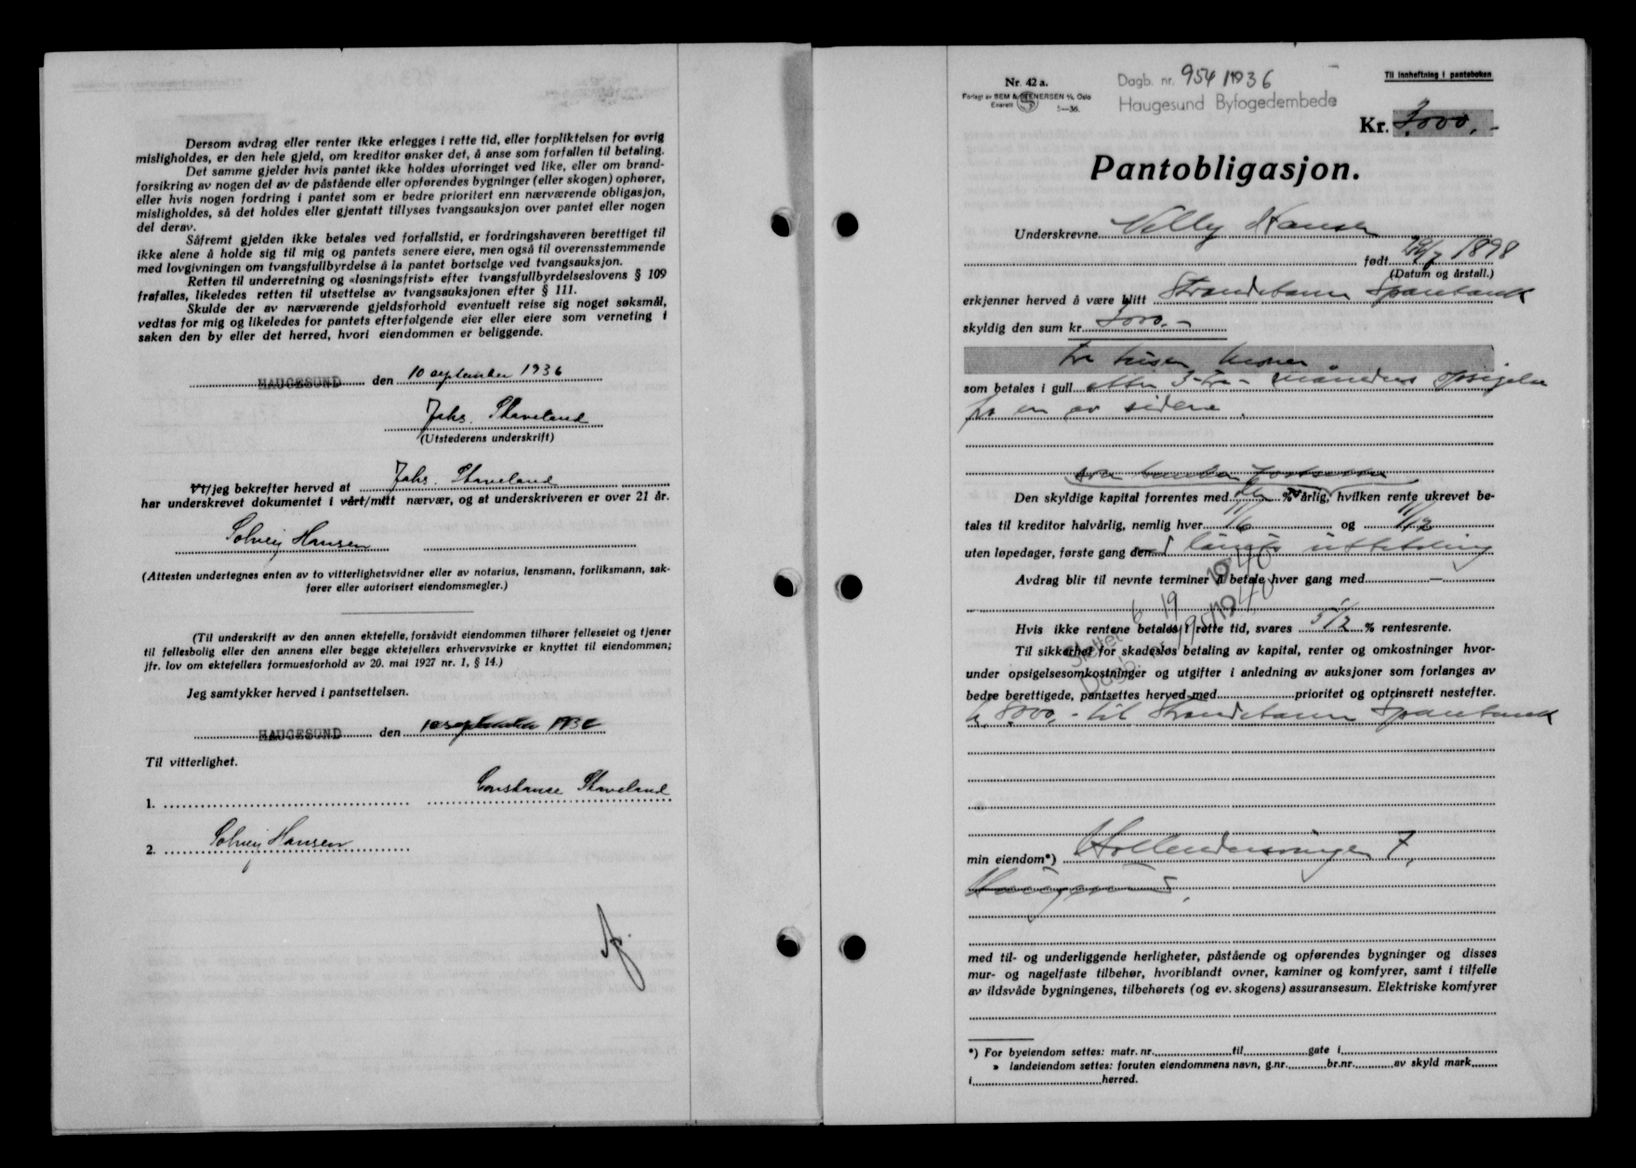 Dersom avdrag eller renter ikke erlegges i rette tid, eller forpliktelsen for øvrig
misligholdes, er den hele gjeld, om kreditor ønsker det, å anse som forfallen til betaling.
Det samme gjelder hvis pantet ikke holdes uforringet ved like, eller om brand-
forsikring av nogen del av de påstående eller opførendes bygninger (eller skogen) ophører,
eller hvis nogen fordring i pantet som er bedre prioritert enn nærværende obligasjon,
misligholdes, så det holdes eller gjentatt tillyses tvangsauksjon over pantet eller nogen
del derav.
Såfremt gjelden ikke betales ved forfallstid, er fordringshaveren berettiget til
ikke alene å holde sig til mig og pantets senere eiere, men også til overensstemmende
med lovgivningen om tvangsfullbyrdelse å la pantet bortselge ved tvangsauksjon.
Retten til underretning og «løsningsfrist» efter tvangsfullbyrdelseslovens § 109
frafalles, likeledes retten til utsettelse av tvangsauksjonen efter § 111.
Skulde der av nærværende gjeldsforhold eventuelt reise sig noget søksmål,
vedtas for mig og likeledes for pantets efterfølgende eier eller eiere som verneting i
saken den by eller det herred, hvori eiendommen er beliggende.
HAUGESUND den 10 september 1936
Johs. Staveland
(Utstederens underskrift)
Vi/jeg bekrefter herved at Johs. Staveland
har underskrevet dokumentet i vårt/mitt nærvær, og at underskriveren er over 21 år.
Solveig Hansen
(Attesten undertegnes enten av to vitterlighetsvidner eller av notarius, lensmann, forliksmann, sak-
fører eller autorisert eiendomsmegler.)
(Til underskrift av den annen ektefelle, forsåvidt eiendommen tilhører felleseiet og tjener
til fellesbolig eller den annens eller begge ektefellers erhvervsvirke er knyttet til eiendommen;
jfr. lov om ektefellers formuesforhold av 20. mai 1927 nr. 1, § 14.)
Jeg samtykker herved i pantsettelsen.
HAUGESUND den 10 september 1936
Til vitterlighet.
Constanse Staveland
1.
2. Solveig Hansen
Nr. 42 a.
Forlagt av SEM & STENERSEN A/S, Oslo
Enerett 5—36.
Dagb. nr. 954 1936
Haugesund Byfogedembede
Til innheftning i panteboken
Kr. 3000,-
Pantobligasjon.
Underskrevne Nelly Hansen
født /7 1898
(Datum og årstall.)
erkjenner herved å være blitt Strandebarm Sparebank
skyldig den sum kr. 3000,-
tre tusen kroner
som betales i gull efter 3-tre- måneders opsigelse
fra en av sidene.
Den skyldige kapital forrentes med % årlig, hvilken rente ukrevet be-
tales til kreditor halvårlig, nemlig hver 1/6 og 1/12
uten løpedager, første gang den lånets utbetaling
Avdrag blir til nevnte terminer å betale hver gang med —
Hvis ikke rentene betales i rette tid, svares 5 1/2 % rentesrente.
Til sikkerhet for skadesløs betaling av kapital, renter og omkostninger hvor-
under opsigelsesomkostninger og utgifter i anledning av auksjoner som forlanges av
bedre berettigede, pantsettes herved med prioritet og optrinsrett nestefter.
kr. 8000,- til Strandebarm Sparebank
Slettet 6 19 1940
Dagb. 1940
min eiendom*) Hollenderveien 7,
Haugesund,
med til- og underliggende herligheter, påstående og opførendes bygninger og disses
mur- og nagelfaste tilbehør, hvoriblandt ovner, kaminer og komfyrer, samt i tilfelle
av ildsvåde bygningenes, tilbehørets (og ev. skogens) assuransesum. Elektriske komfyrer
*) For byeiendom settes: matr. nr. til gate i
» landeiendom settes: foruten eiendommens navn, g.nr. br.nr. av skyld mark
i herred.